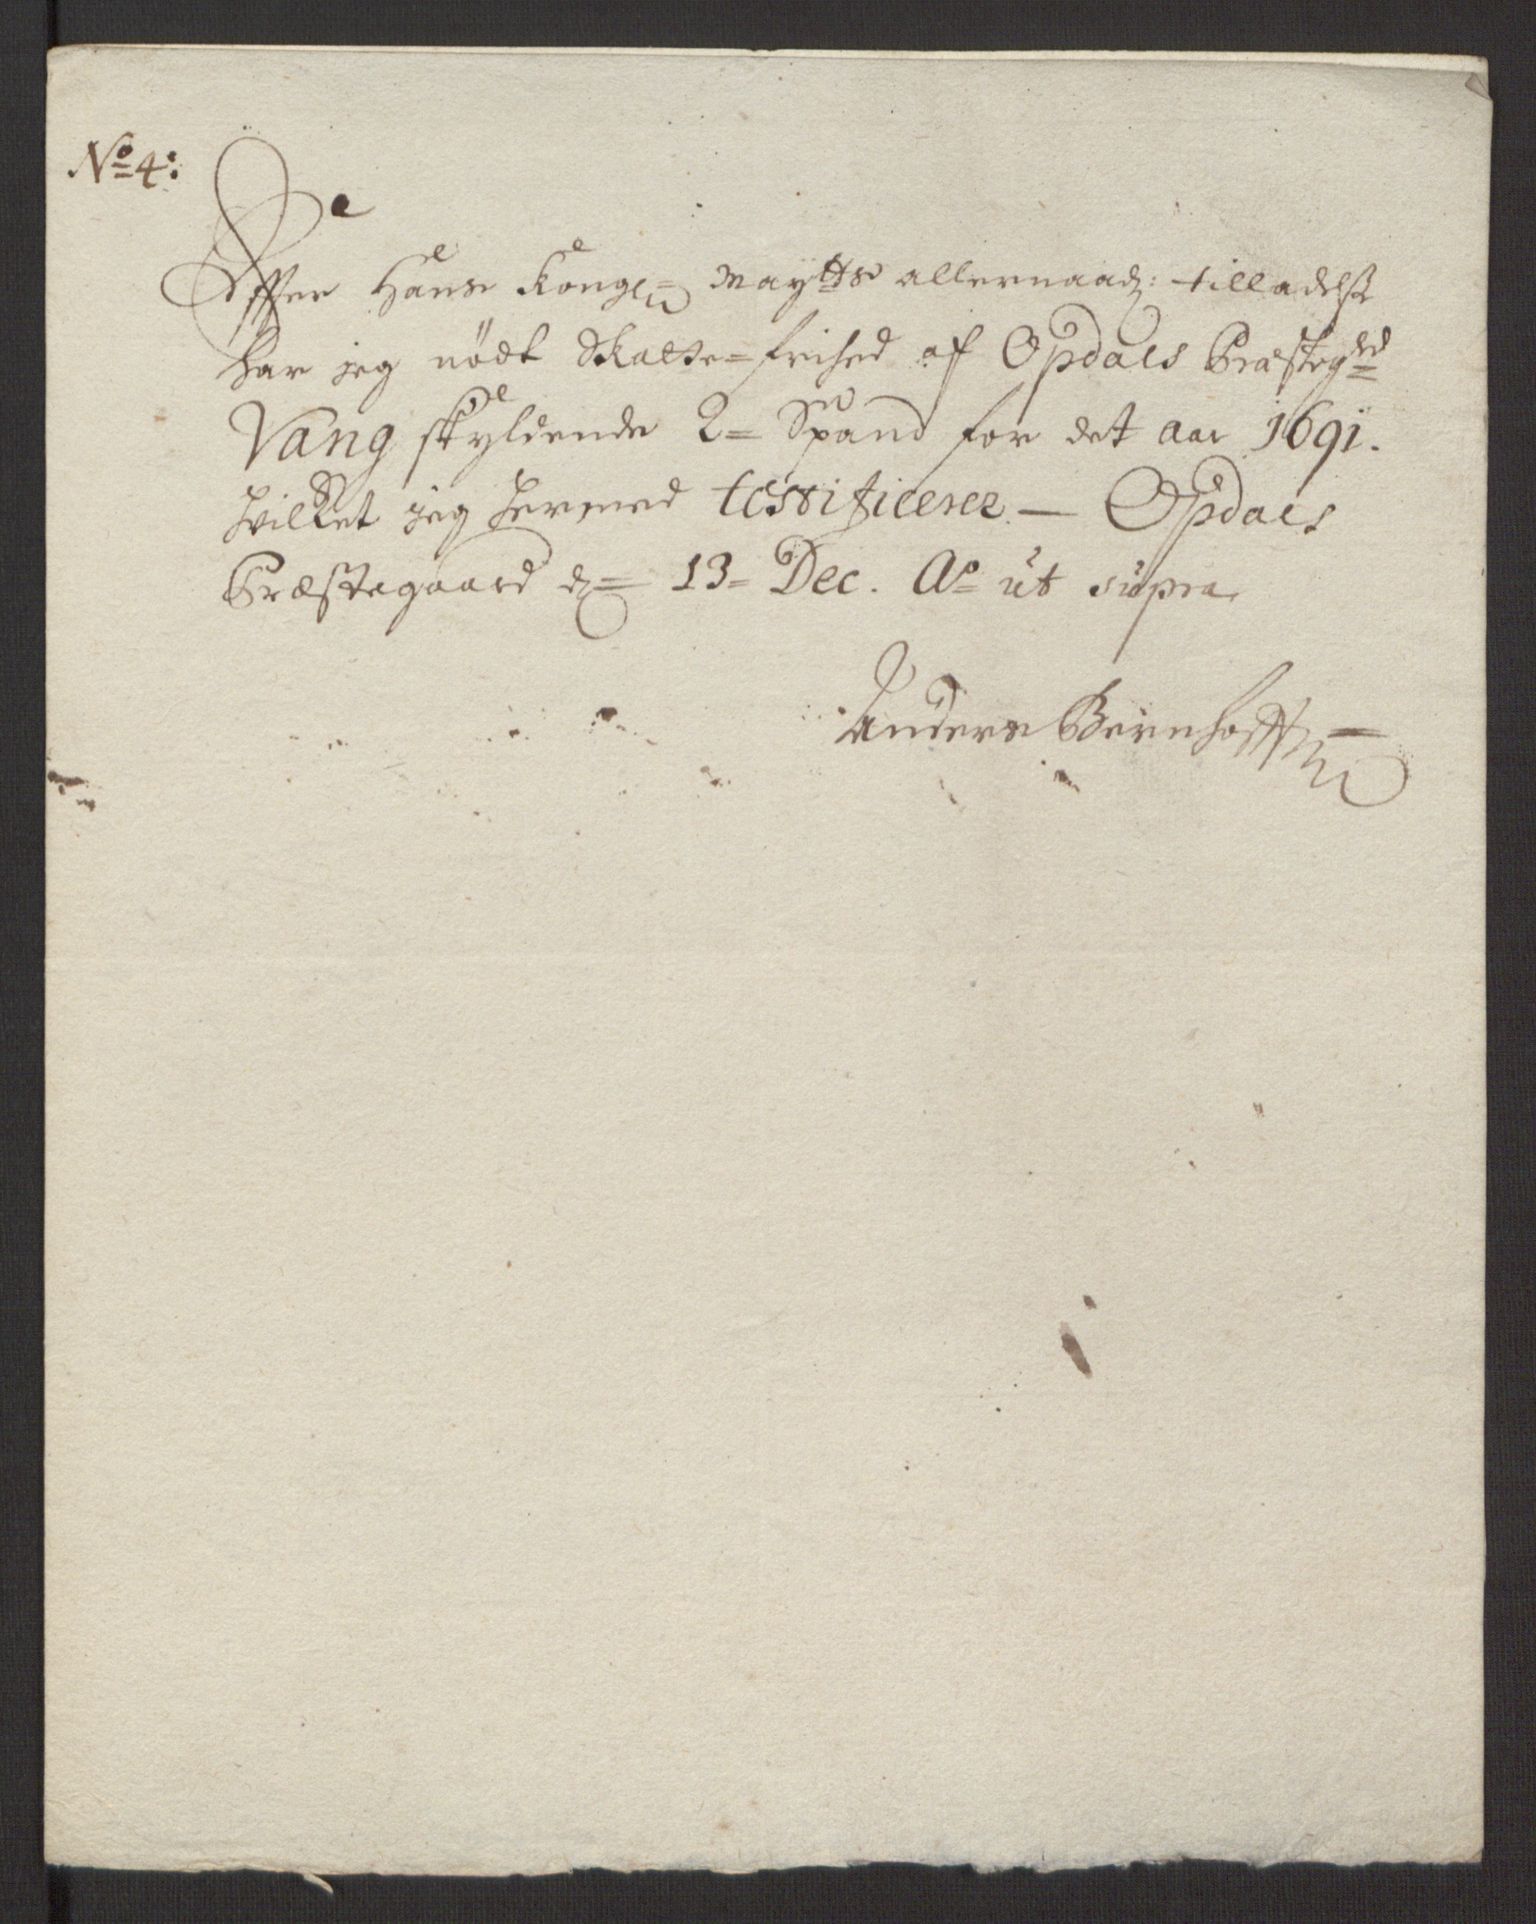 No 4:
Effter Hans Kongl= Maytts allernaad: tilladelse
har jeg nödt Skatte=frihed af Opdals Præstegrd
Vang skyldende 2= Spand for det aar 1691.
hvilket jeg hermed testificerer — Opdals
Præstegaard d= 13= Dec. Ao ut supra
Anders Bernhofft